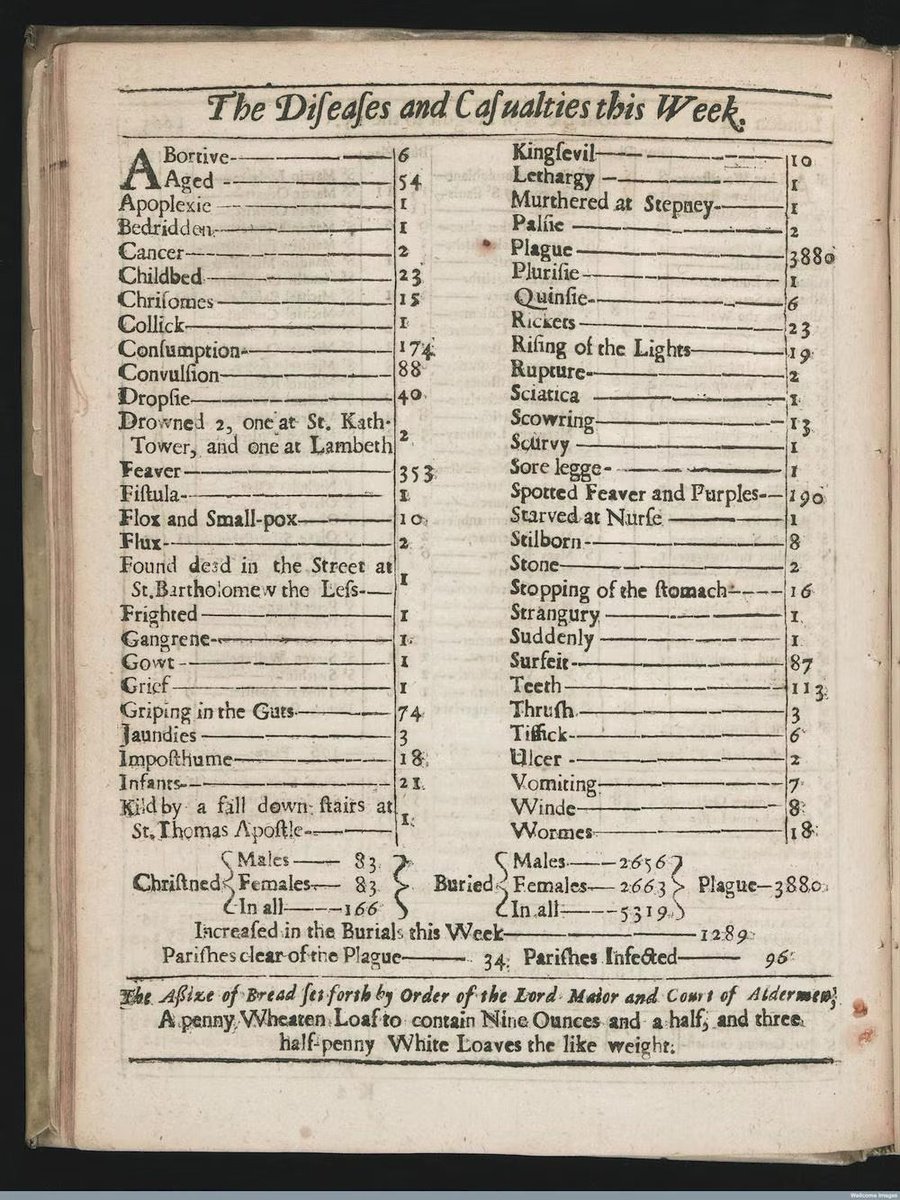 The Diſeaſes and Caſualties this Week.
ABortive 6
Aged 54
Apoplexie 1
Bedridden 1
Cancer 2
Childbed 23
Chriſomes 15
Collick 1
Conſumption 174
Convulſion 88
Dropſie 40
Drowned 2, one at St. Kath-
Tower, and one at Lambeth 2
Feaver 353
Fiſtula 1
Flox and Small-pox 10
Flux 2
Found dead in the Street at
St. Bartholomew the Leſs 1
Frighted 1
Gangrene 1
Gowt 1
Grief 1
Griping in the Guts 74
Jaundies 3
Impoſthume 18
Infants 21
Kild by a fall down ſtairs at
St. Thomas Apoſtle 1
Kingſevil 10
Lethargy 1
Murthered at Stepney 1
Palſie 2
Plague 3880
Pluriſie 1
Quinſie 6
Rickets 23
Riſing of the Lights 19
Rupture 2
Sciatica 1
Scowring 13
Scurvy 1
Sore legge 1
Spotted Feaver and Purples 190
Starved at Nurſe 1
Stilborn 8
Stone 2
Stopping of the ſtomach 16
Strangury 1
Suddenly 1
Surfeit 87
Teeth 113
Thruſh 3
Tiſſick 6
Ulcer 2
Vomiting 7
Winde 8
Wormes 18
Chriſtned Males 83 Females 83 In all 166
Buried Males 2656 Females 2663 In all 5319 Plague 3880
Increaſed in the Burials this Week 1289
Pariſhes clear of the Plague 34 Pariſhes Infected 96
The Aſſize of Bread ſet forth by Order of the Lord Maior and Court of Aldermen,
A penny Wheaten Loaf to contain Nine Ounces and a half, and three
half-penny White Loaves the like weight.
Wellcome Images